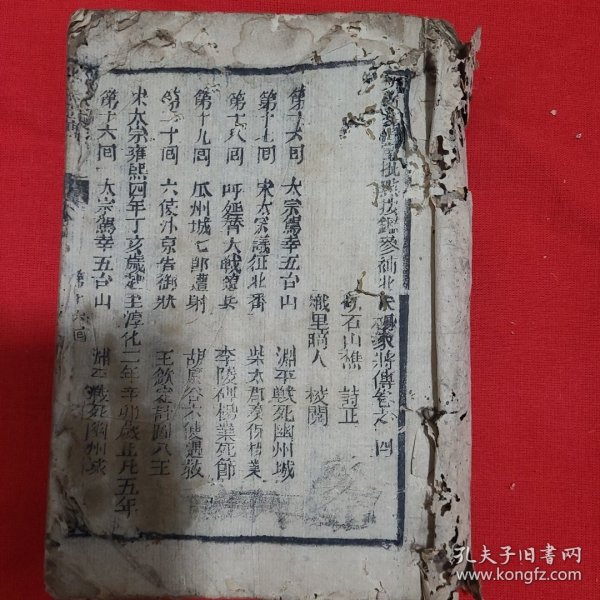 批點按鑑參補北宋楊家將傳卷之四
石山樵 封正
織里畸人 校閱
第十六回 太宗駕幸五台山 淵平戰死幽州城
第十七回 宋太宗議征北番 柴太郡奏保楊業
第十八回 呼延贊大戰遼兵 李陵碑楊業死節
第十九回 瓜州城七郎遭射 胡原谷六使遇救
第二十回 六使汴京告御狀 王欽定計圖八王
宋太宗雍熙四年丁亥歲起至淳化二年辛卯歲止凡五年
第十六回 太宗駕幸五台山 淵平戰死幽州城
第十六回
孔夫子旧書网
www.kongfz.com